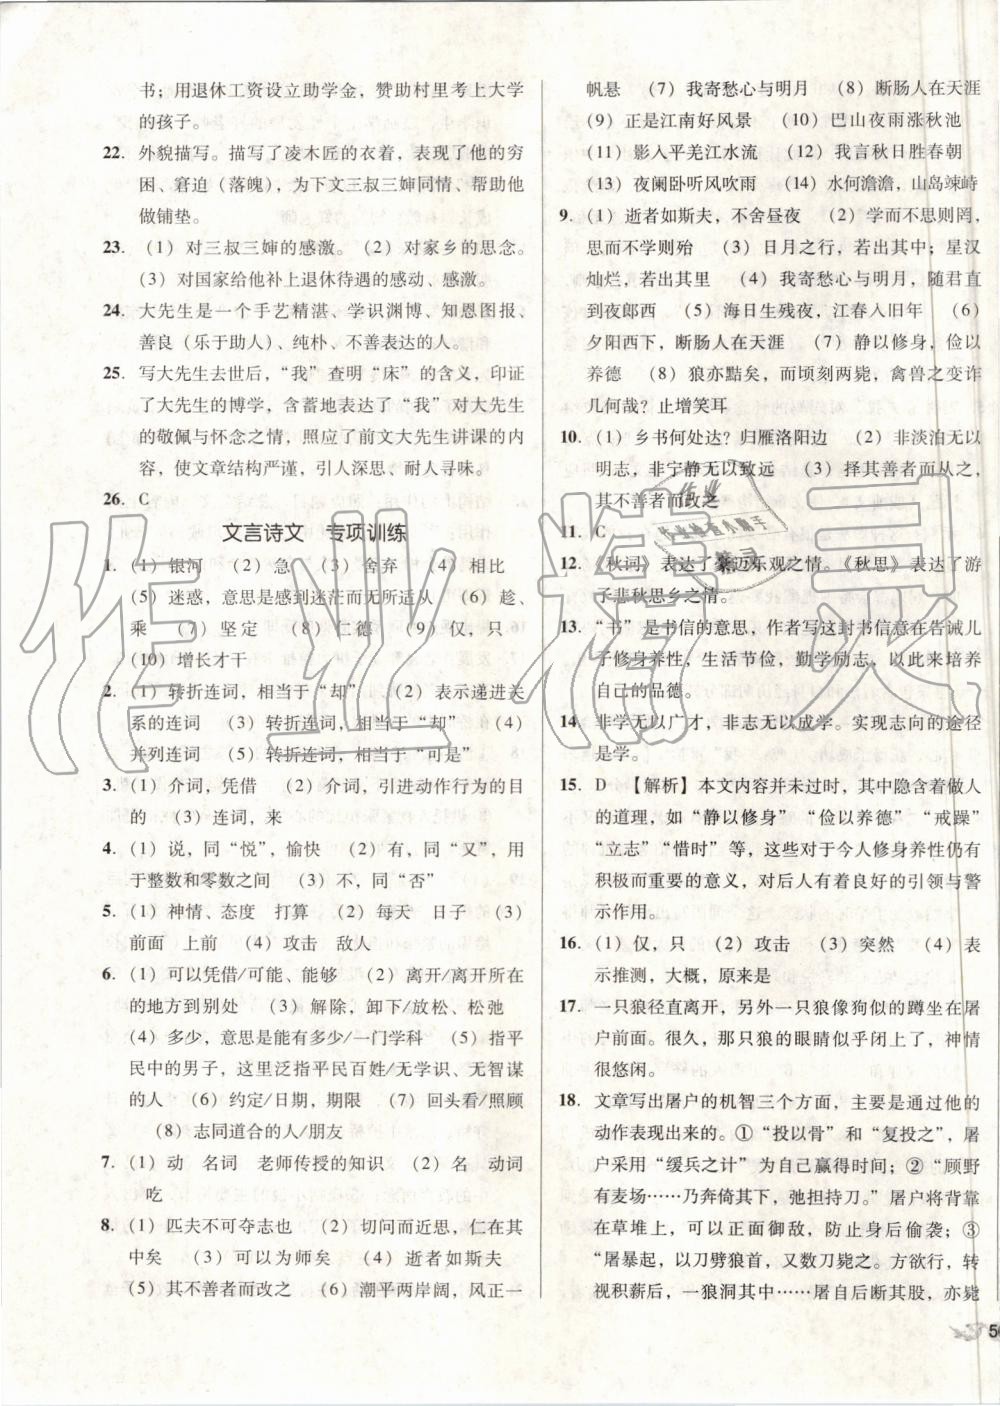 书；用退休工资设立助学金，赞助村里考上大学
的孩子。
22. 外貌描写。描写了凌木匠的衣着，表现了他的穷
困、窘迫（落魄），为下文三叔三婶同情、帮助他
做铺垫。
23. （1）对三叔三婶的感激。（2）对家乡的思念。
（3）对国家给他补上退休待遇的感动、感激。
24. 大先生是一个手艺精湛、学识渊博、知恩图报、
善良（乐于助人）、纯朴、不善表达的人。
25. 写大先生去世后，“我”查明“床”的含义，印证
了大先生的博学，含蓄地表达了“我”对大先生
的敬佩与怀念之情，照应了前文大先生讲课的内
容，使文章结构严谨，引人深思、耐人寻味。
26. C
文言诗文 专项训练
1. （1）银河 （2）急 （3）舍弃 （4）相比
（5）迷惑，意思是感到迷茫而无所适从 （6）趁、
乘 （7）坚定 （8）仁德 （9）仅，只
（10）增长才干
2. （1）转折连词，相当于“却” （2）表示递进关
系的连词 （3）转折连词，相当于“却” （4）
并列连词 （5）转折连词，相当于“可是”
3. （1）介词，凭借 （2）介词，引进动作行为的目
的 （3）连词，来
4. （1）说，同“悦”，愉快 （2）有，同“又”，用
于整数和零数之间 （3）不，同“否”
5. （1）神情、态度 打算 （2）每天 日子 （3）
前面 上前 （4）攻击 敌人
6. （1）可以凭借/可能、能够 （2）离开/离开所在
的地方到别处 （3）解除，卸下/放松、松弛
（4）多少，意思是能有多少/一门学科 （5）指平
民中的男子，这里泛指平民百姓/无学识、无智谋
的人 （6）约定/日期，期限 （7）回头看/照顾
（8）志同道合的人/朋友
7. （1）动 名词 老师传授的知识 （2）名 动词
吃
8. （1）匹夫不可夺志也 （2）切问而近思，仁在其
中矣 （3）可以为师矣 （4）逝者如斯夫
（5）其不善者而改之 （6）潮平两岸阔，风正一
帆悬 （7）我寄愁心与明月 （8）断肠人在天涯
（9）正是江南好风景 （10）巴山夜雨涨秋池
（11）影入平羌江水流 （12）我言秋日胜春朝
（13）夜阑卧听风吹雨 （14）水何澹澹，山岛竦峙
9. （1）逝者如斯夫，不舍昼夜 （2）学而不思则罔，
思而不学则殆 （3）日月之行，若出其中；星汉
灿烂，若出其里 （4）我寄愁心与明月，随君直
到夜郎西 （5）海日生残夜，江春入旧年 （6）
夕阳西下，断肠人在天涯 （7）静以修身，俭以
养德 （8）狼亦黠矣，而顷刻两毙，禽兽之变诈
几何哉？止增笑耳
10. （1）乡书何处达？归雁洛阳边 （2）非淡泊无以
明志，非宁静无以致远 （3）择其善者而从之，
其不善者而改之
11. C
12. 《秋词》表达了豪迈乐观之情。《秋思》表达了游
子悲秋思乡之情。
13. “书”是书信的意思，作者写这封书信意在告诫儿
子修身养性，生活节俭，勤学励志，以此来培养
自己的品德。
14. 非学无以广才，非志无以成学。实现志向的途径
是学。
15. D 【解析】本文内容并未过时，其中隐含着做人
的道理，如“静以修身”“俭以养德”“戒躁”
“立志”“惜时”等，这些对于今人修身养性仍有
积极而重要的意义，对后人有着良好的引领与警
示作用。
16. （1）仅，只 （2）攻击 （3）突然 （4）表
示推测，大概，原来是
17. 一只狼径直离开，另外一只狼像狗似的蹲坐在屠
户前面。很久，那只狼的眼睛似乎闭上了，神情
很悠闲。
18. 文章写出屠户的机智三个方面，主要是通过他的
动作表现出来的。①“投以骨”和“复投之”，屠
户采用“缓兵之计”为自己赢得时间；②“顾野
有麦场……乃奔倚其下，弛担持刀。”屠户将背靠
在草堆上，可以正面御敌，防止身后偷袭；③
“屠暴起，以刀劈狼首，又数刀毙之。方欲行，转
视积薪后，一狼洞其中……屠自后断其股，亦毙
作业精灵